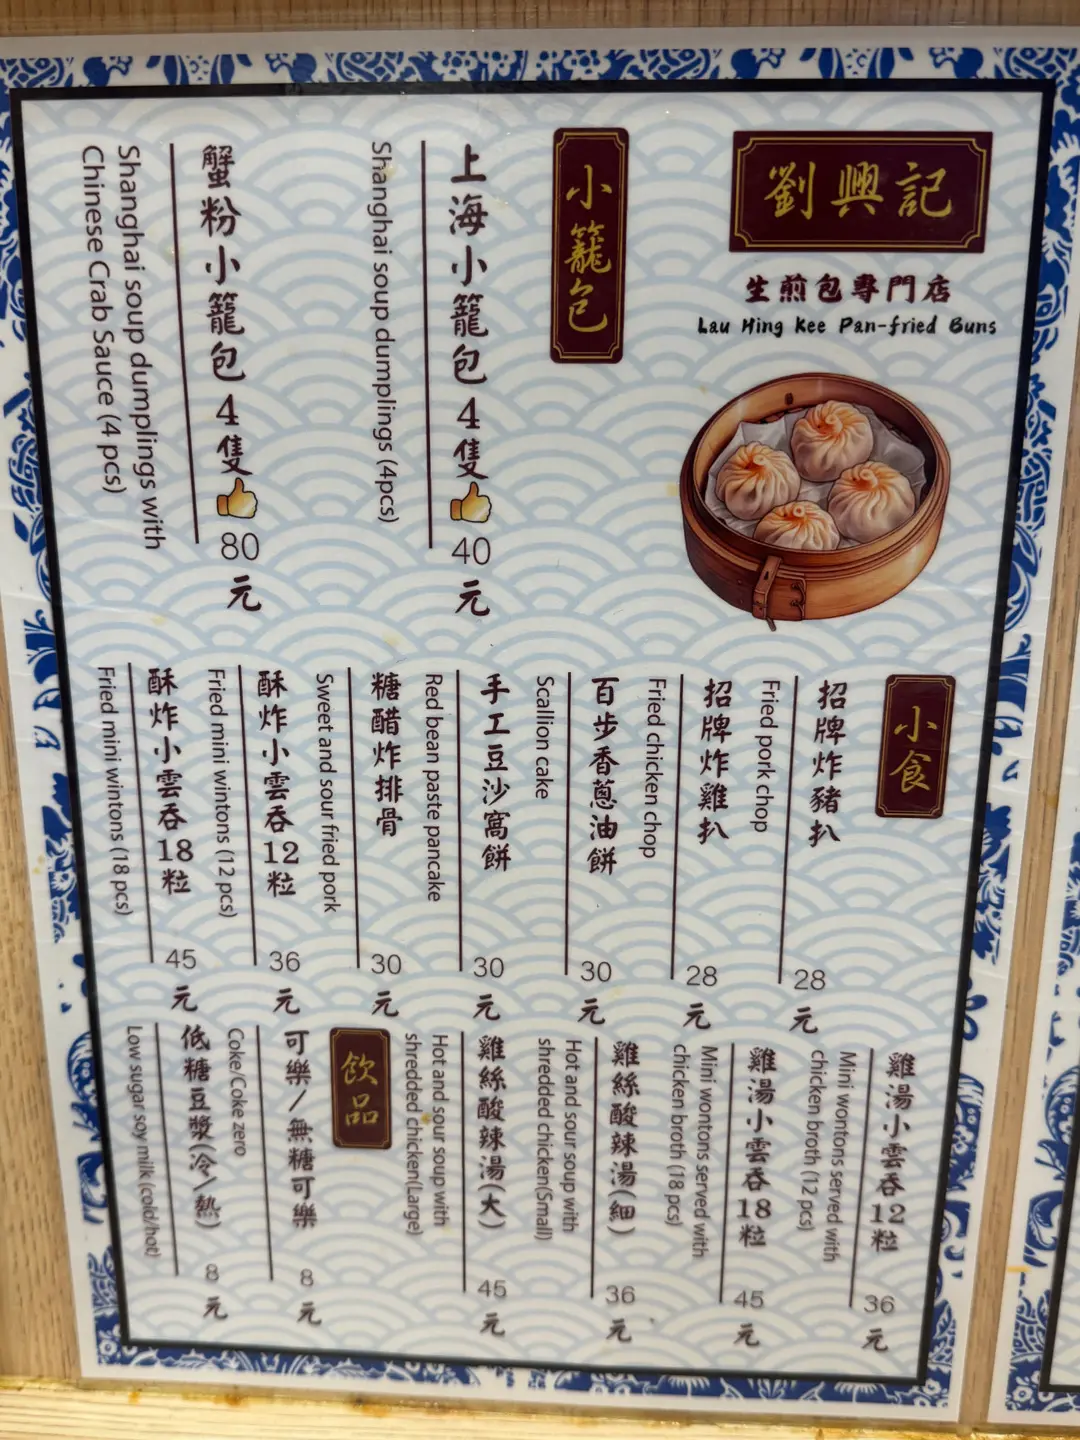 劉興記
生煎包專門店
Lau Hing Kee Pan-fried Buns
小籠包
上海小籠包4隻 40元
Shanghai soup dumplings (4pcs)
蟹粉小籠包4隻 80元
Shanghai soup dumplings with
Chinese Crab Sauce (4 pcs)
小食
招牌炸豬扒 28元
Fried pork chop
招牌炸雞扒 28元
Fried chicken chop
百步香蔥油餅 30元
Scallion cake
手工豆沙窩餅 30元
Red bean paste pancake
糖醋炸排骨 30元
Sweet and sour fried pork
酥炸小雲吞12粒 36元
Fried mini wintons (12 pcs)
酥炸小雲吞18粒 45元
Fried mini wintons (18 pcs)
雞湯小雲吞12粒 36元
Mini wontons served with
chicken broth (12 pcs)
雞湯小雲吞18粒 45元
Mini wontons served with
chicken broth (18 pcs)
雞絲酸辣湯(細) 36元
Hot and sour soup with
shredded chicken(Small)
雞絲酸辣湯(大) 45元
Hot and sour soup with
shredded chicken(Large)
飲品
可樂/無糖可樂 8元
Coke/Coke zero
低糖豆漿(冷/熱) 8元
Low sugar soy milk (cold/hot)